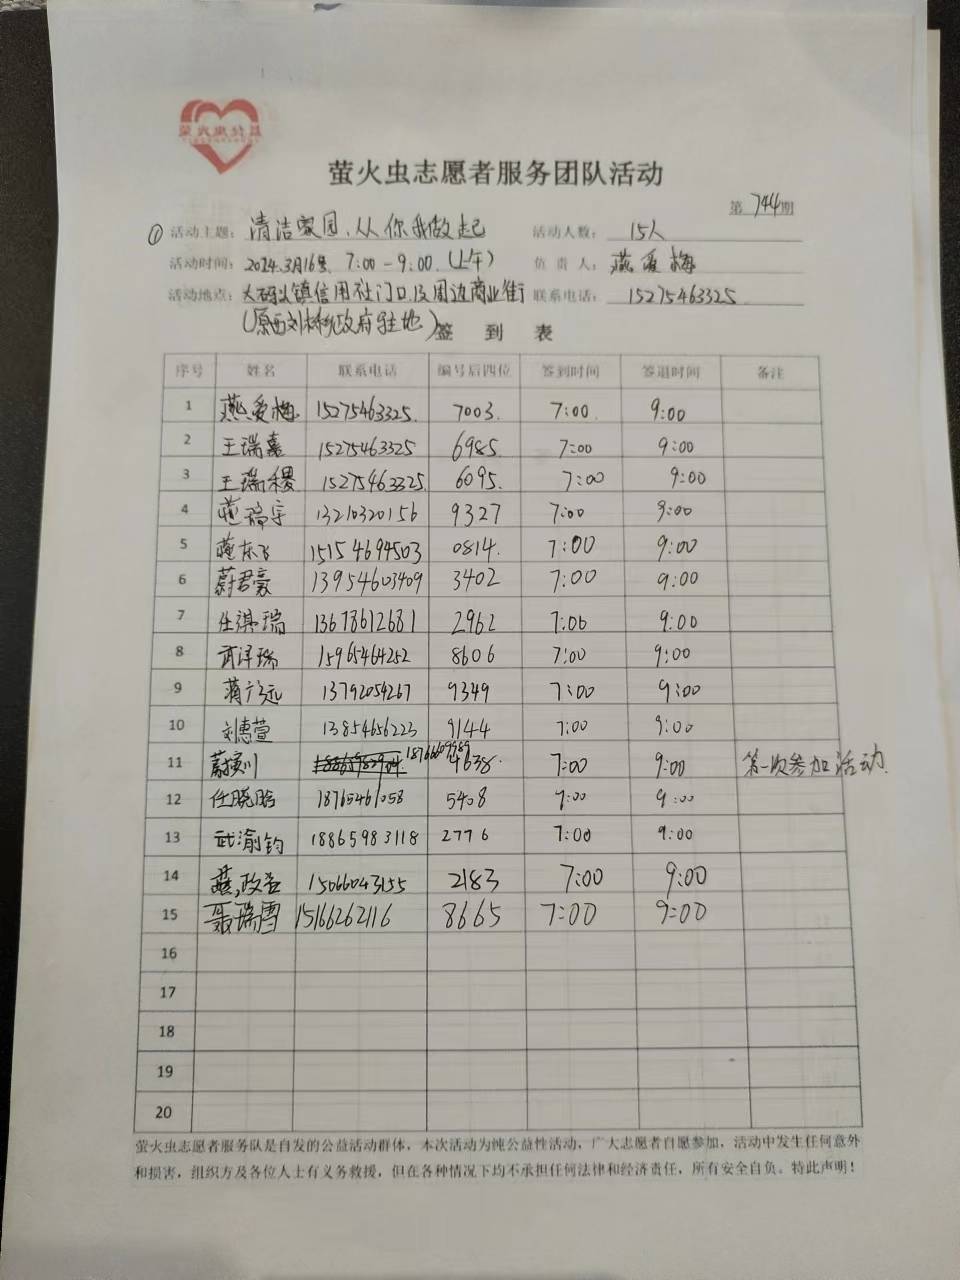 萤火虫志愿者服务团队活动
第744期
① 活动主题：清洁家园、从你我做起 活动人数：15人
活动时间：2024.3月16号 7:00-9:00（上午） 负责人：燕爱梅
活动地点：大码头镇信用社门口及周边商业街 联系电话：15275463325
（原西刘桥政府驻地） 签到表
序号 姓名 联系电话 编号后四位 签到时间 签退时间 备注
1 燕爱梅 15275463325 7003 7:00 9:00
2 王瑞嘉 15275463325 6985 7:00 9:00
3 王瑞稷 15275463325 6095 7:00 9:00
4 瑞宇 13210320156 9327 7:00 9:00
5 东飞 15154694503 0814 7:00 9:00
6 蔚君豪 13954603409 3402 7:00 9:00
7 任淇瑞 13678612681 2962 7:00 9:00
8 武泽瑞 15965464252 8606 7:00 9:00
9 蒋广远 13792054267 9349 7:00 9:00
10 刘惠萱 13854656223 9144 7:00 9:00
11 蔚川 18766609989 4638 7:00 9:00 第一次参加活动
12 任晓晗 18765461058 5408 7:00 9:00
13 武渝钧 18865983118 2776 7:00 9:00
14 燕政 15066043155 2183 7:00 9:00
15 聂瑞雪 15166262116 8665 7:00 9:00
16
17
18
19
20
萤火虫志愿者服务队是自发的公益活动群体，本次活动为纯公益性活动，广大志愿者自愿参加，活动中发生任何意外
和损害，组织方及各位人士有义务救援，但在各种情况下均不承担任何法律和经济责任，所有安全自负。特此声明！